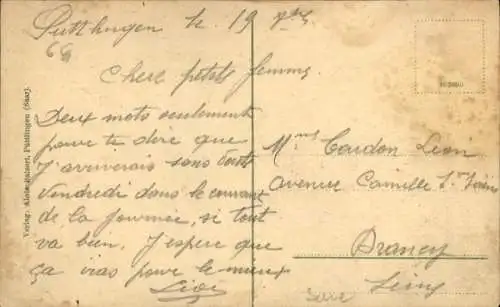 Puttlingen le 19
Chere petite femme
Deux mots seulement
pour te dire que
J'arriverais sans doute
vendredi dans le courant
de la journée, si tout
va bien. J'espere que
ça vias pour le mieux
Léon
Mme Cardon Leon
avenue Camille
Drancy
Seine
Verlag: Püttlingen (Saar).